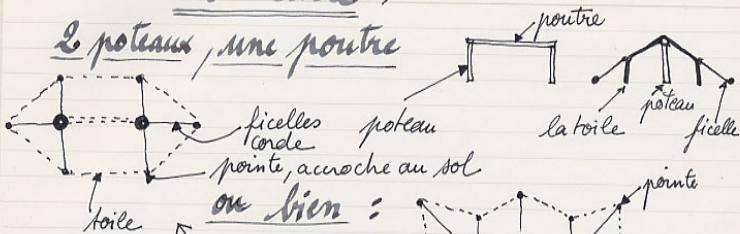 2 poteaux, une poutre
poutre
poteau
la toile
poteau
ficelle
ficelles
corde
pointe, accroche au sol
toile
ou bien :
pointe